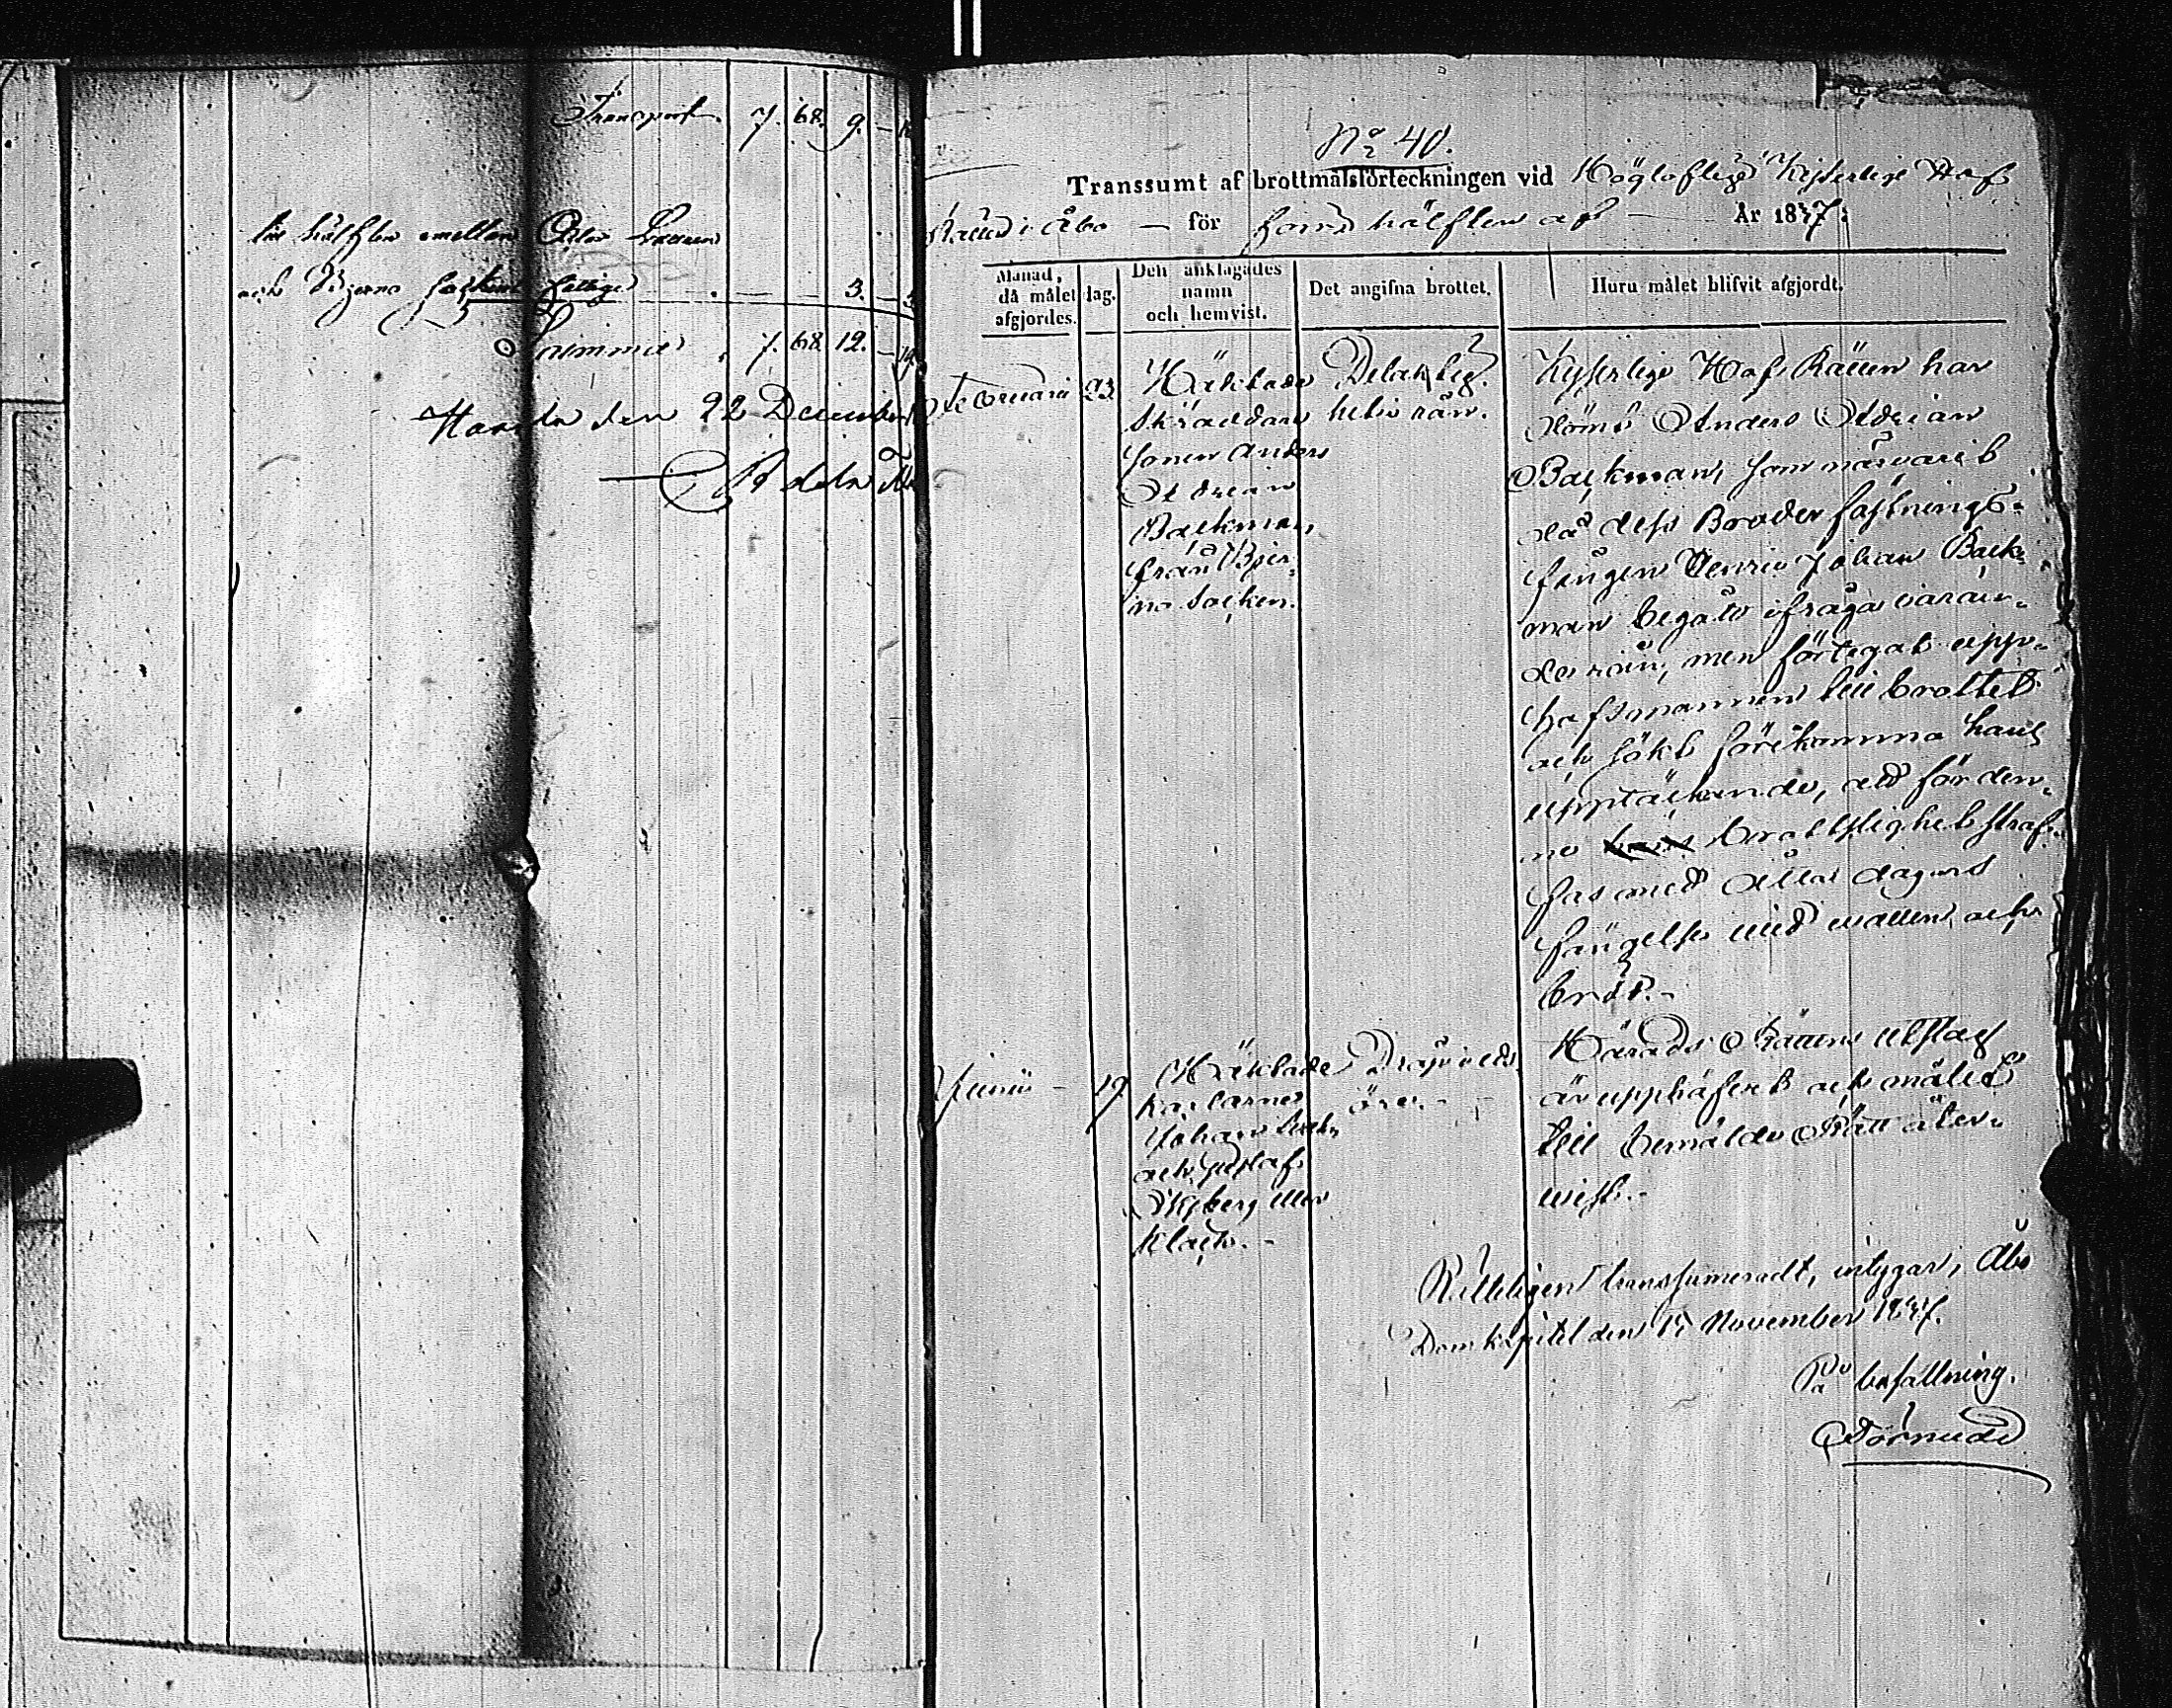 Transport. 7. 68. 9. –
till hälften emellan
och Bjerno Sockens fattige 3. –
Summa 7. 68. 12. –
den 22 December
No 40.
Transsumt af brottmålsförteckningen vid Högloflige Kejserlige Hof
Rätten i Åbo — för förra hälften af — År 1847.
Månad,
då målet
afgjordes.
dag.
Den anklagades
namn
och hemvist.
Det angifna brottet.
Huru målet blifvit afgjordt.
Februari 23.
Häktade
Skräddare
sonen Anders
Adrian
Backman,
från Bjer-
no Socken.
Delaktig-
het i rån.
Kejserlige Hof Rätten har
dömt Anders Adrian
Backman, som närvarit
då dess Broder fästnings-
fången Henric Johan Back-
man begått ifrågavaran-
de rån, men förtegat upp-
hofsmannen till brottet
och sökt förekomma hans
upptäckande, att för den-
na brottslighet straf-
fas med åtta dagars
fängelse vid vatten och
bröd.
Junii 19.
Häktade
karlarne
Johan
och Gustaf
Nyberg eller
Klack.
Dråp
Härads Rättens utslag
är upphäfvet och målet
till bemälde Rätt åter-
vist.
Rätteligen transsumeradt, intygar, Åbo
Domkapitel den 17 November 1847.
På befallning.